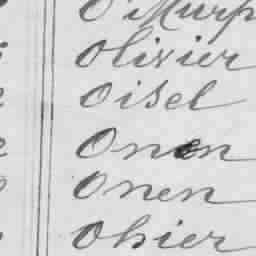 O'Murp
Olivier
Oisel
Onen
Onen
Ohier